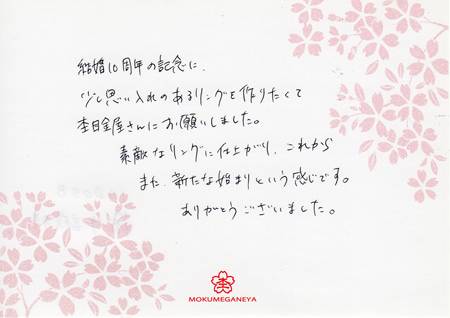 結婚10周年の記念に、
少し思い入れのあるリングを作りたくて
杢目金屋さんにお願いしました。
素敵なリングに仕上がり、これから
また、新たな始まりという感じです。
ありがとうございました。
杢
MOKUMEGANEYA